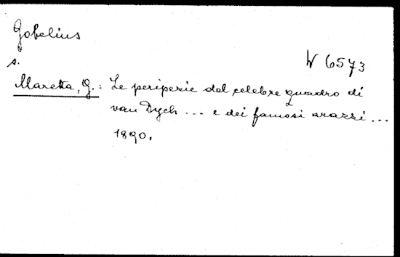 Gobelius
W 6573
s.
Maretta, G.: Le peripezie del celebre quadro di
van Dych ... e dei famosi arazzi ...
1890.